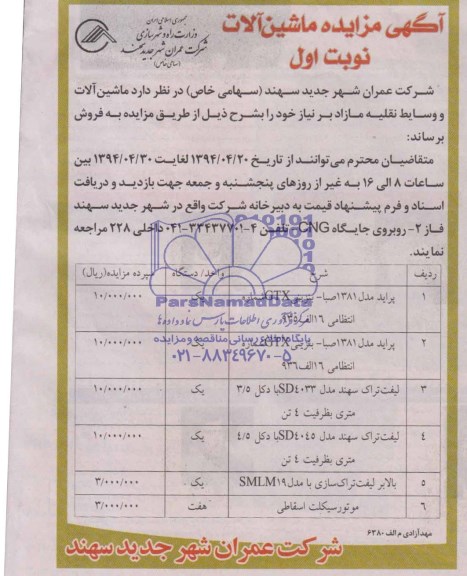 آگهی مزایده ماشین‌آلات
نوبت اول
جمهوری اسلامی ایران
وزارت راه و شهرسازی
شرکت عمران شهر جدید سهند
(سهامی خاص)
شرکت عمران شهر جدید سهند (سهامی خاص) در نظر دارد ماشین‌آلات
و وسایط نقلیه مازاد بر نیاز خود را بشرح ذیل از طریق مزایده به فروش
برساند:
متقاضیان محترم می‌توانند از تاریخ ۱۳۹۴/۰۴/۲۰ لغایت ۱۳۹۴/۰۴/۳۰ بین
ساعات ۸ الی ۱۶ به غیر از روزهای پنجشنبه و جمعه جهت بازدید و دریافت
اسناد و فرم پیشنهاد قیمت به دبیرخانه شرکت واقع در شهر جدید سهند
فاز ۲- روبروی جایگاه CNG تلفن ۴-۳۳۴۳۷۷۰۱-۰۴۱ داخلی ۲۲۸ مراجعه
نمایند.
ردیف شرح واحد/ دستگاه سپرده مزایده(ریال)
۱ پراید مدل ۱۳۸۱صبا- GTX یک ۱۰/۰۰۰/۰۰۰
انتظامی ۱۶الف۹۳۵
۲ پراید مدل ۱۳۸۱صبا- بنزینی GTX شماره یک ۱۰/۰۰۰/۰۰۰
انتظامی ۱۶الف۹۳۶
۳ لیفت‌تراک سهند مدل SD۴۰۳۳ با دکل ۳/۵ یک ۱۰/۰۰۰/۰۰۰
متری بظرفیت ۴ تن
۴ لیفت‌تراک سهند مدل SD۴۰۴۵ با دکل ۴/۵ یک ۱۰/۰۰۰/۰۰۰
متری بظرفیت ۴ تن
۵ بالابر لیفت‌تراک‌سازی با مدل SMLM۱۹ یک ۳/۰۰۰/۰۰۰
۶ موتورسیکلت اسقاطی هفت ۳/۰۰۰/۰۰۰
ParsNamadData
پایگاه اطلاع رسانی مناقصه و مزایده
۰۲۱-۸۸۳۴۹۶۷۰-۵
مهدآزادی م الف ۶۳۸۰
شرکت عمران شهر جدید سهند